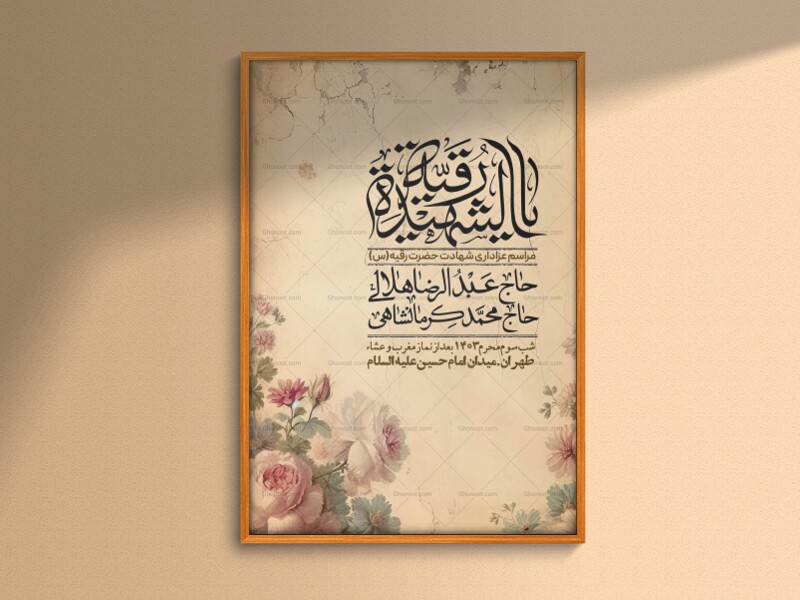 یا رقیة الشهیدة
مراسم عزاداری شهادت حضرت رقیه(س)
حاج عَبْدُ الرضا هلالے
حاج محمَّد کرمانشاهی
شب سوم محرم ۱۴۰۳ بعد از نماز مغرب و عشاء
طهران.میدان امام حسین علیه السلام
Ghonoot.com